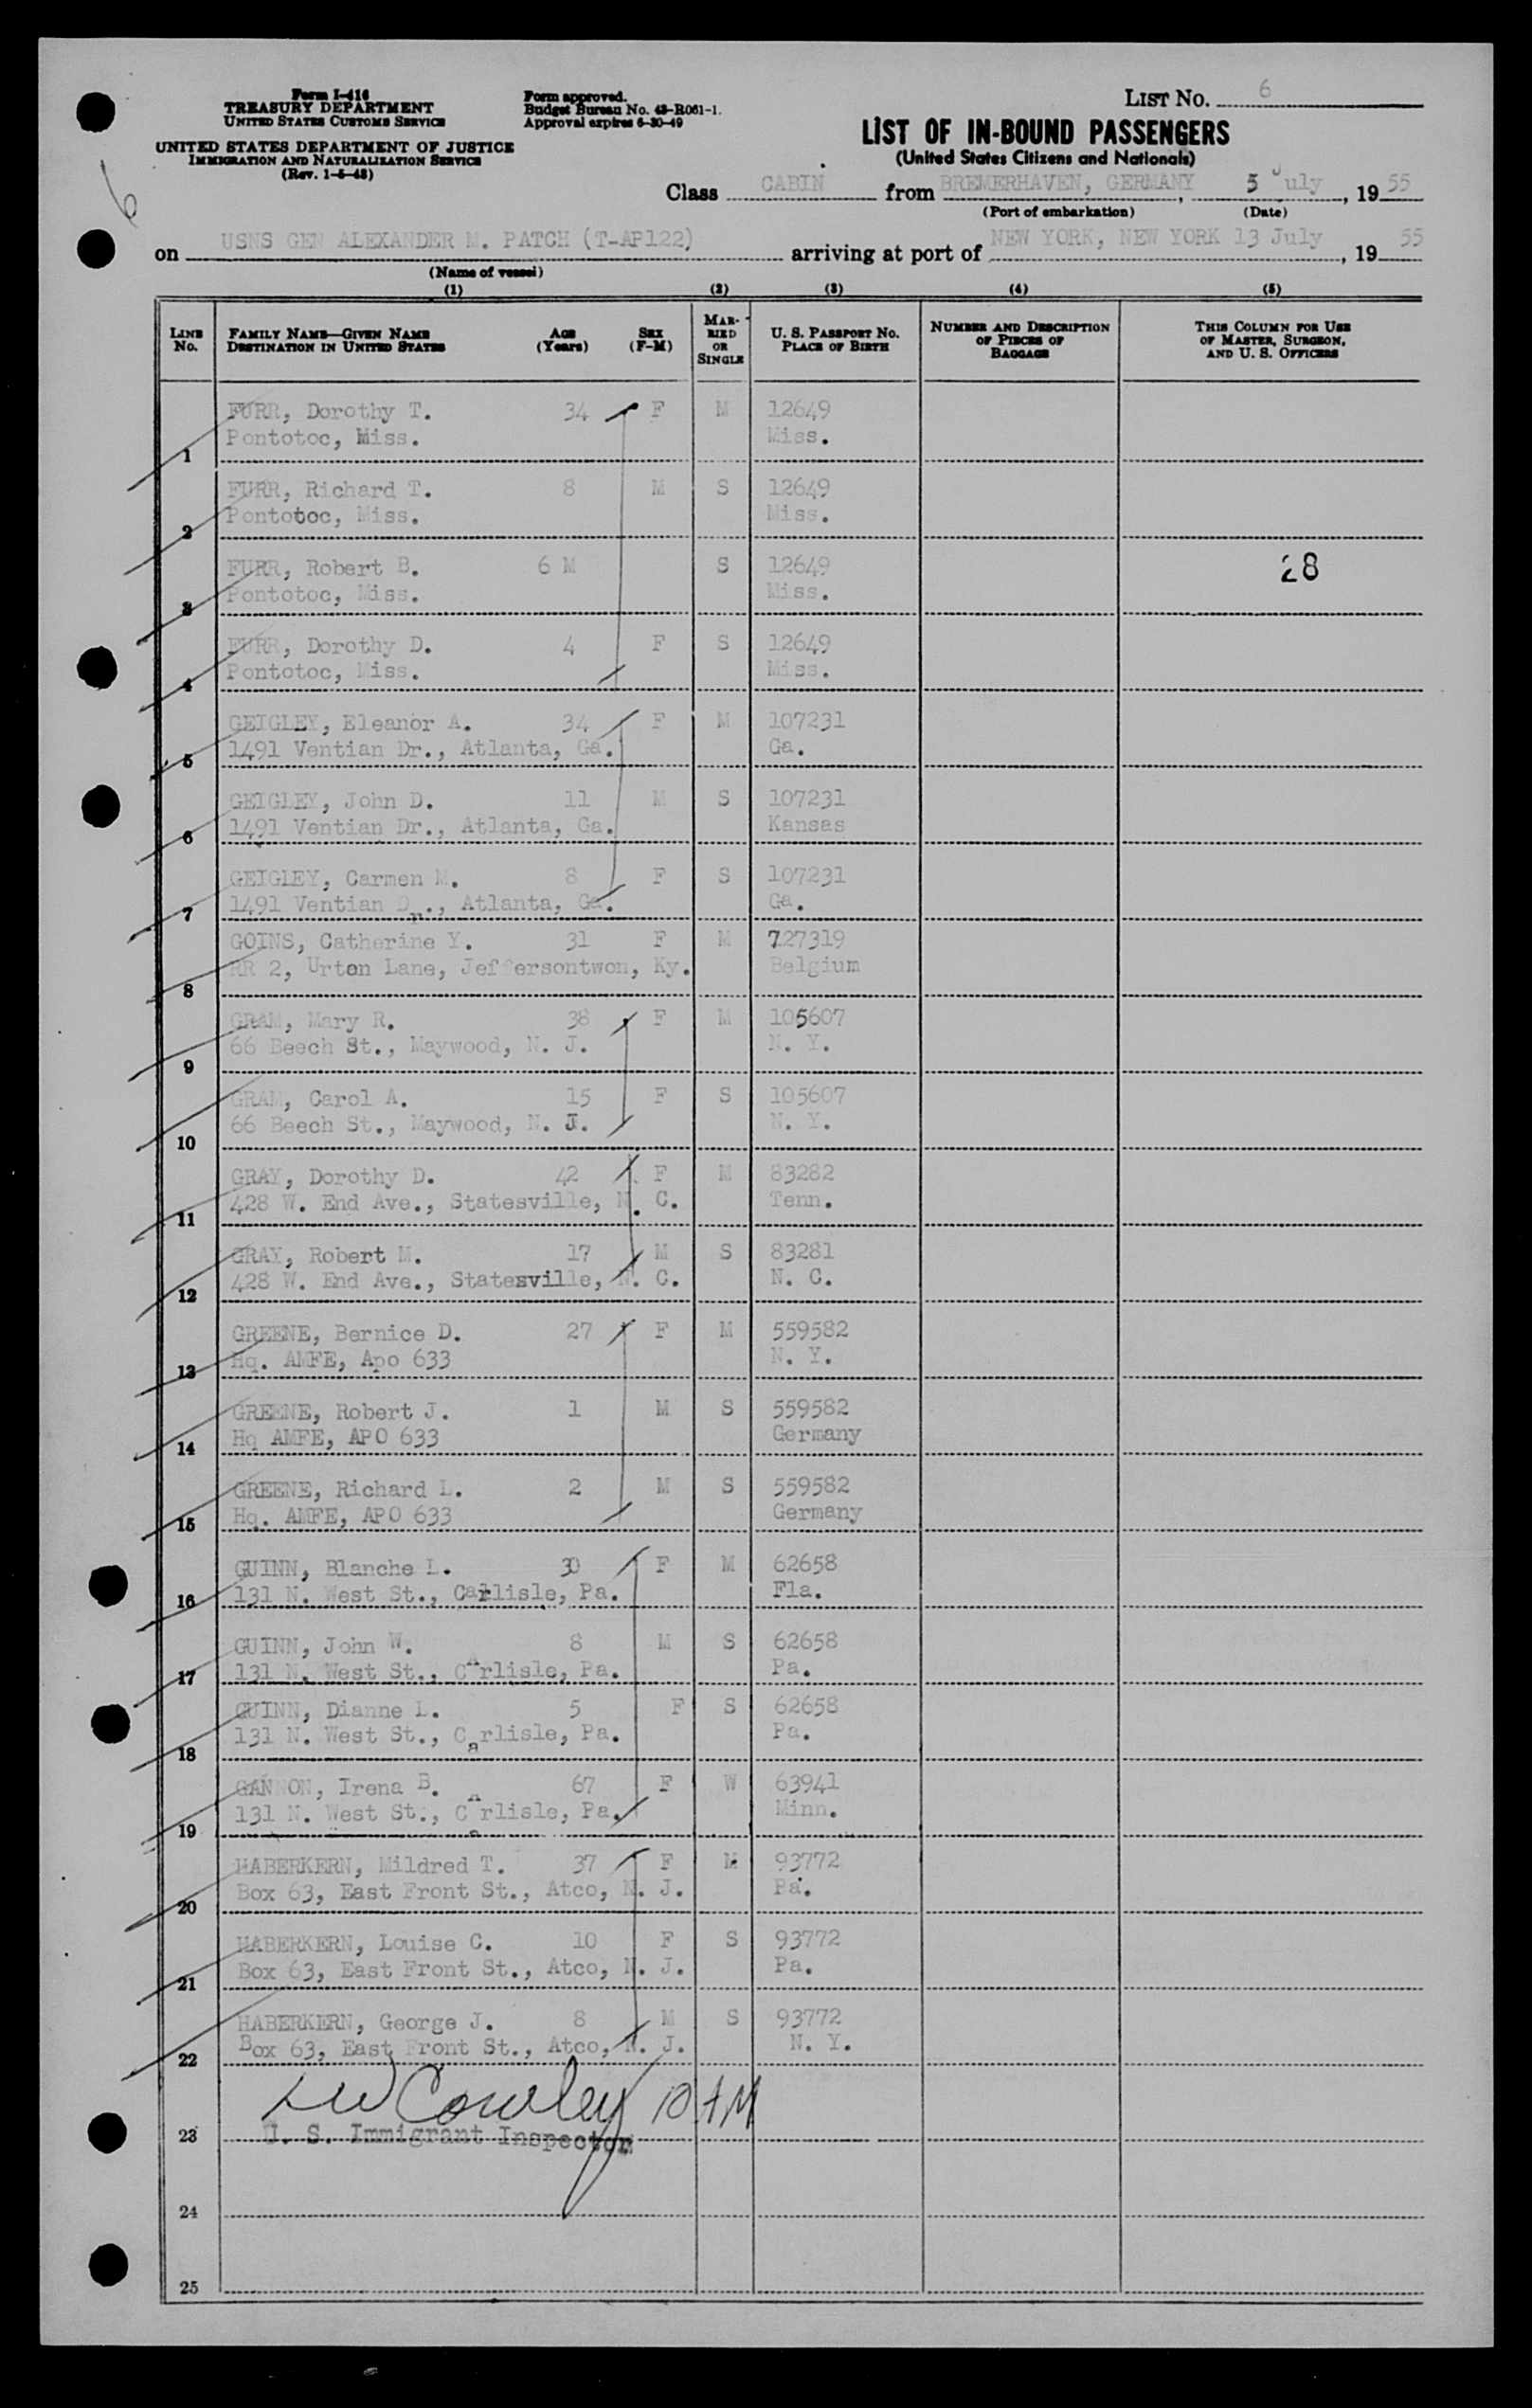 Form I-416
TREASURY DEPARTMENT
UNITED STATES CUSTOMS SERVICE
UNITED STATES DEPARTMENT OF JUSTICE
IMMIGRATION AND NATURALIZATION SERVICE
(Rev. 1-5-48)
Form approved.
Budget Bureau No. 43-R061-1.
Approval expires 6-30-49
LIST NO. 6
LIST OF IN-BOUND PASSENGERS
(United States Citizens and Nationals)
6
Class CABIN from BREMERHAVEN, GERMANY, 5 July, 1955
(Port of embarkation) (Date)
on USNS GEN ALEXANDER M. PATCH (T-AP122) arriving at port of NEW YORK, NEW YORK 13 July, 1955
(Name of vessel)
(1) (2) (3) (4) (5)
LINE NO. FAMILY NAME—GIVEN NAME DESTINATION IN UNITED STATES AGE (YEARS) SEX (F-M) MARRIED OR SINGLE U. S. PASSPORT NO. PLACE OF BIRTH NUMBER AND DESCRIPTION OF PIECES OF BAGGAGE THIS COLUMN FOR USE OF MASTER, SURGEON, AND U. S. OFFICERS
FURR, Dorothy T. 34 F M 12649
1 Pontotoc, Miss. Miss.
FURR, Richard T. 8 M S 12649
2 Pontotoc, Miss. Miss.
FURR, Robert B. 6 M S 12649 28
3 Pontotoc, Miss. Miss.
FURR, Dorothy D. 4 F S 12649
4 Pontotoc, Miss. Miss.
GEIGLEY, Eleanor A. 34 F M 107231
5 1491 Ventian Dr., Atlanta, Ga. Ga.
GEIGLEY, John D. 11 M S 107231
6 1491 Ventian Dr., Atlanta, Ga. Kansas
GEIGLEY, Carmen M. 8 F S 107231
7 1491 Ventian Dr., Atlanta, Ga. Ga.
GOINS, Catherine Y. 31 F M 727319
8 RR 2, Urton Lane, Jeffersontwon, Ky. Belgium
GRAM, Mary R. 38 F M 105607
9 66 Beech St., Maywood, N. J. N. Y.
GRAM, Carol A. 15 F S 105607
10 66 Beech St., Maywood, N. J. N. Y.
GRAY, Dorothy D. 42 F M 83282
11 428 W. End Ave., Statesville, N. C. Tenn.
GRAY, Robert M. 17 M S 83281
12 428 W. End Ave., Statesville, N. C. N. C.
GREENE, Bernice D. 27 F M 559582
13 Hq. AMFE, Apo 633 N. Y.
GREENE, Robert J. 1 M S 559582
14 Hq AMFE, APO 633 Germany
GREENE, Richard L. 2 M S 559582
15 Hq. AMFE, APO 633 Germany
GUINN, Blanche L. 30 F M 62658
16 131 N. West St., Carlisle, Pa. Fla.
GUINN, John W. 8 M S 62658
17 131 N. West St., Carlisle, Pa. Pa.
GUINN, Dianne L. 5 F S 62658
18 131 N. West St., Carlisle, Pa. Pa.
GANNON, Irena B. 67 F W 63941
19 131 N. West St., Carlisle, Pa. Minn.
HABERKERN, Mildred T. 37 F M 93772
20 Box 63, East Front St., Atco, N. J. Pa.
HABERKERN, Louise C. 10 F S 93772
21 Box 63, East Front St., Atco, N. J. Pa.
HABERKERN, George J. 8 M S 93772
22 Box 63, East Front St., Atco, N. J. N. Y.
Cowley 10 AM
23 U. S. Immigrant Inspector
24
25